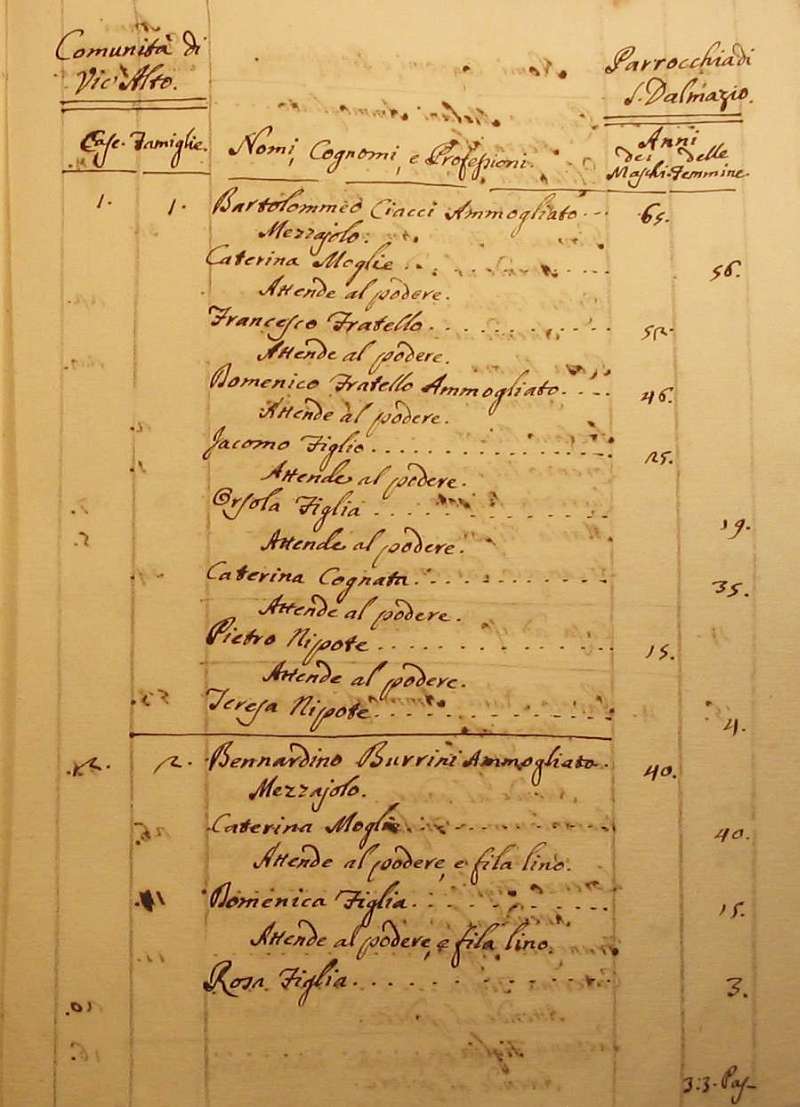 Comunità di
Vic'Alto.
Parrocchia di
S. Dalmazio.
Case. Famiglie.
Nomi, Cognomi, e Professioni.
Anni
dei delle
Maschi. Femmine.
1. 1. Bartolommeo Ciacci Ammogliato 65.
Mezzajolo.
Caterina Moglie 56.
Attende al podere.
Francesco Fratello 52.
Attende al podere.
Domenico Fratello Ammogliato 46.
Attende al podere.
Jacomo Figlio 25.
Attende al podere.
Orsola Figlia 19.
Attende al podere.
Caterina Cognata 35.
Attende al podere.
Pietro Nipote 15.
Attende al podere.
Teresa Nipote 4.
2. 2. Bennardino Burrini Ammogliato 40.
Mezzajolo.
Caterina Moglie 40.
Attende al podere, e fila lino.
Domenica Figlia 15.
Attende al podere, e fila lino.
Rosa Figlia 3.